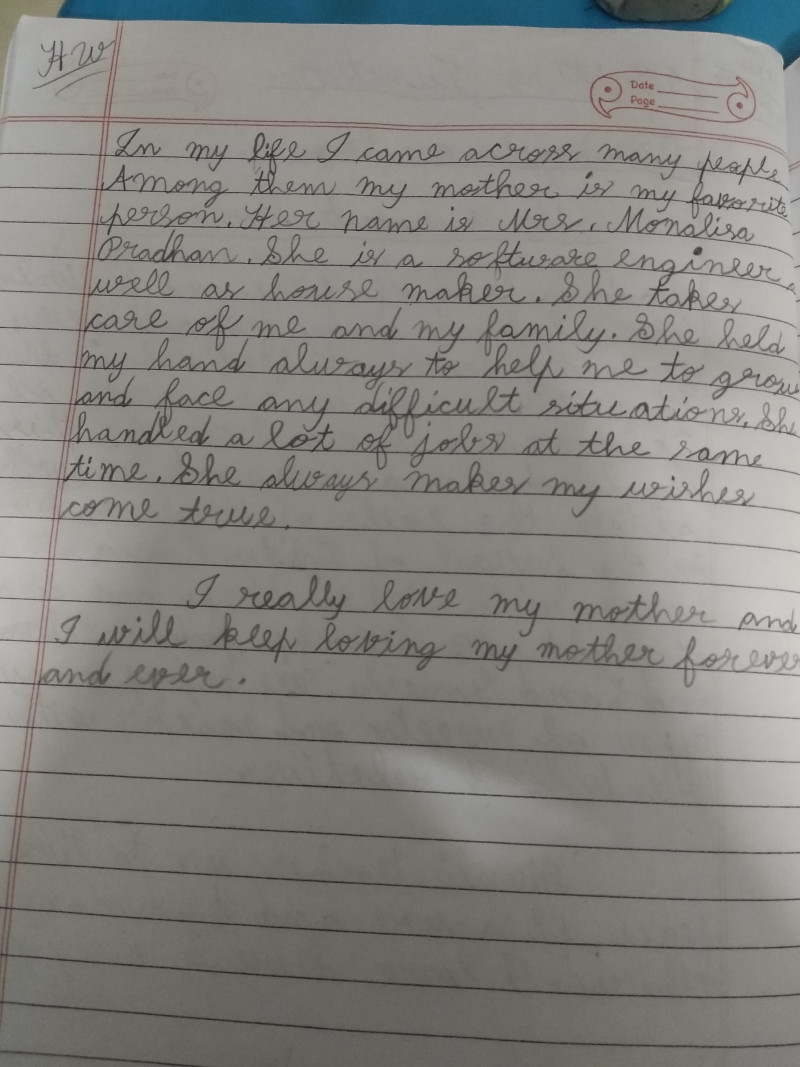 HW
Date
Page
In my life I came across many people
Among them my mother is my favorite
person. Her name is Mrs. Monalisa
Pradhan. She is a software engineer a
well as house maker. She takes
care of me and my family. She held
my hand always to help me to grow
and face any difficult situations. She
handled a lot of jobs at the same
time. She always makes my wishes
come true.
I really love my mother and
I will keep loving my mother forever
and ever.